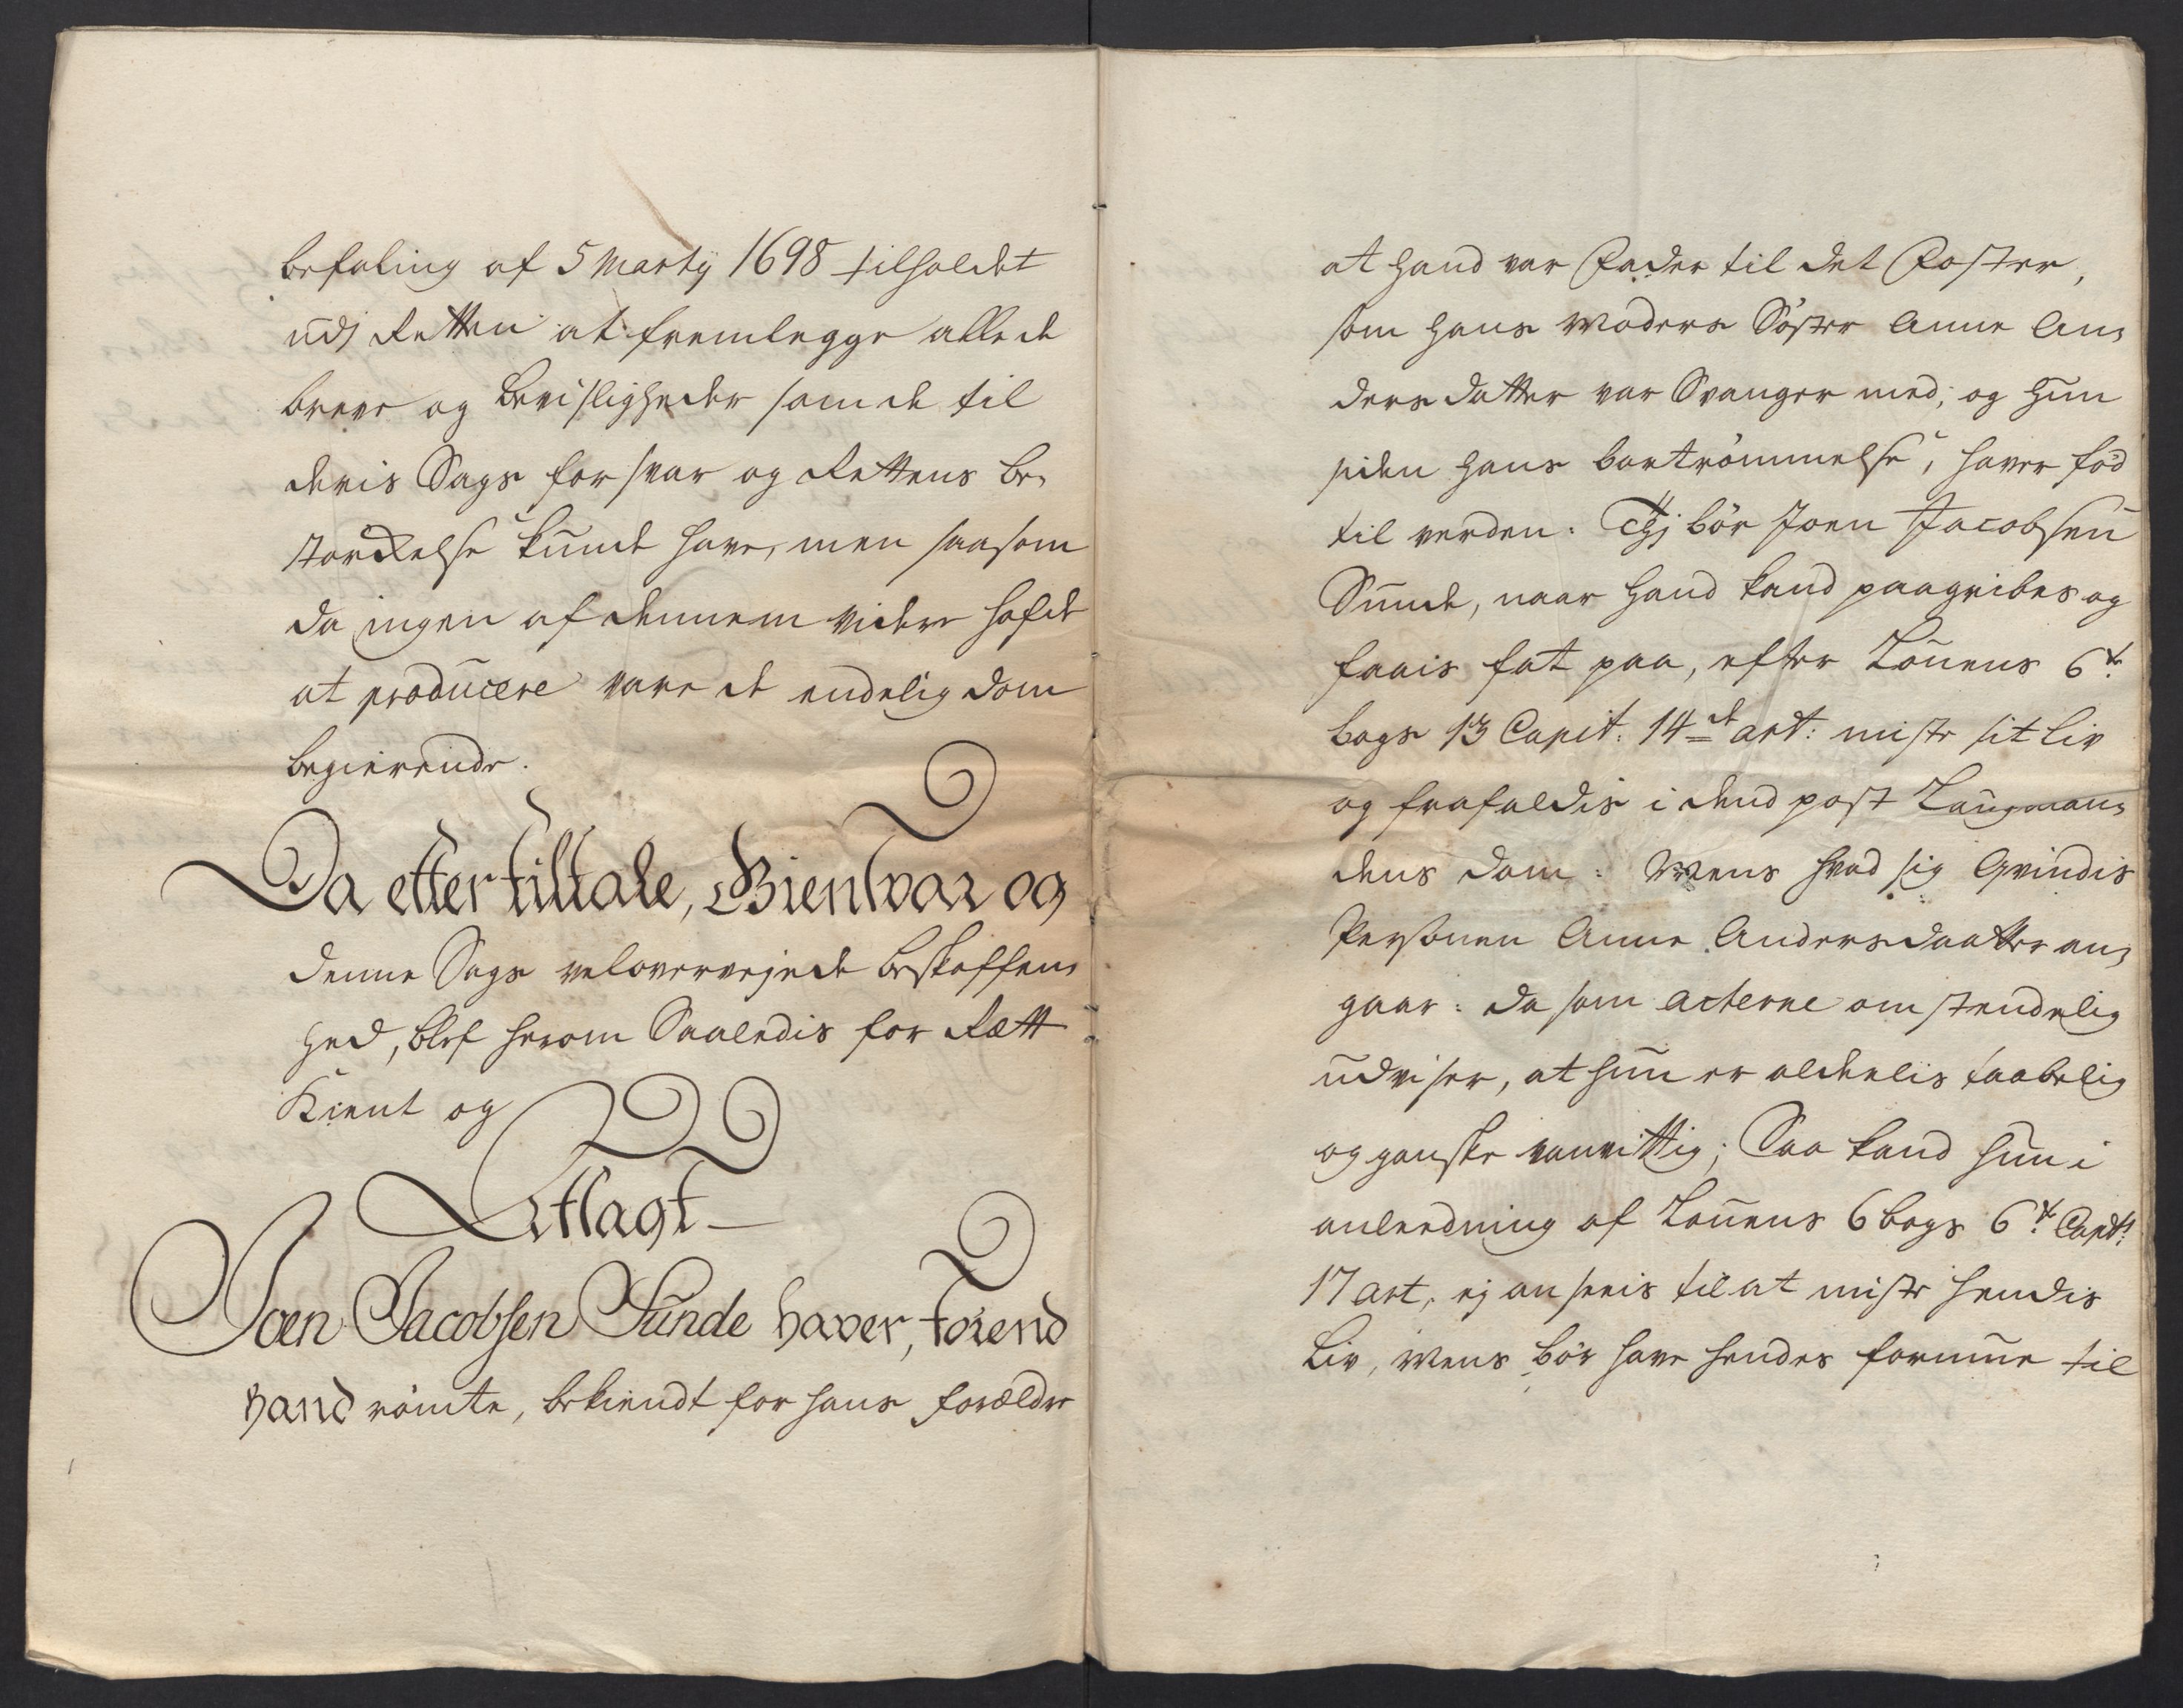 befaling af 5 Marty 1698 tilholdet
udj Retten at fremlegge alle de
breve og Bevisligheder som de til
deris Sags forsvar og Rettens be¬
storckelse kunde have, men saasom
da ingen af dennem videre hafde
at producere vare de endelig dom
begierende.
Da effter tiltale, Giensvar og
denne Sags velovervejede beskaffen¬
hed, blef herom Saaledis for Rætt
Kient og
Afsagt
Joen Jacobsen Sunde haver, forend
hand römte, bekiendt for hans forældre
at hand var Fader til det Foster,
som hans Moders Söster Anne An¬
dersdatter var Svanger med, og hun
siden hans bortrömmelse, haver föd
til verden: Thj bör Joen Jacobsen
Sunde, naar hand kand paagribes og
faais fat paa, efter Louens 6te
bogs 13 Capit: 14de art: miste sit liv
og frafaldis i dend post Laugman¬
dens dom: Mens hvad sig Qvindis
Personen Anne Andersdaatter an¬
gaar: da som acterne omstendelig
udviser, at hun er aldelis taabelig
og ganske vanvittig; Saa kand hun i
anleedning af Louens 6 bogs 6te Capt:
17 art, ej ansees til at miste hendis
Liv, Mens bör have hendes formue til